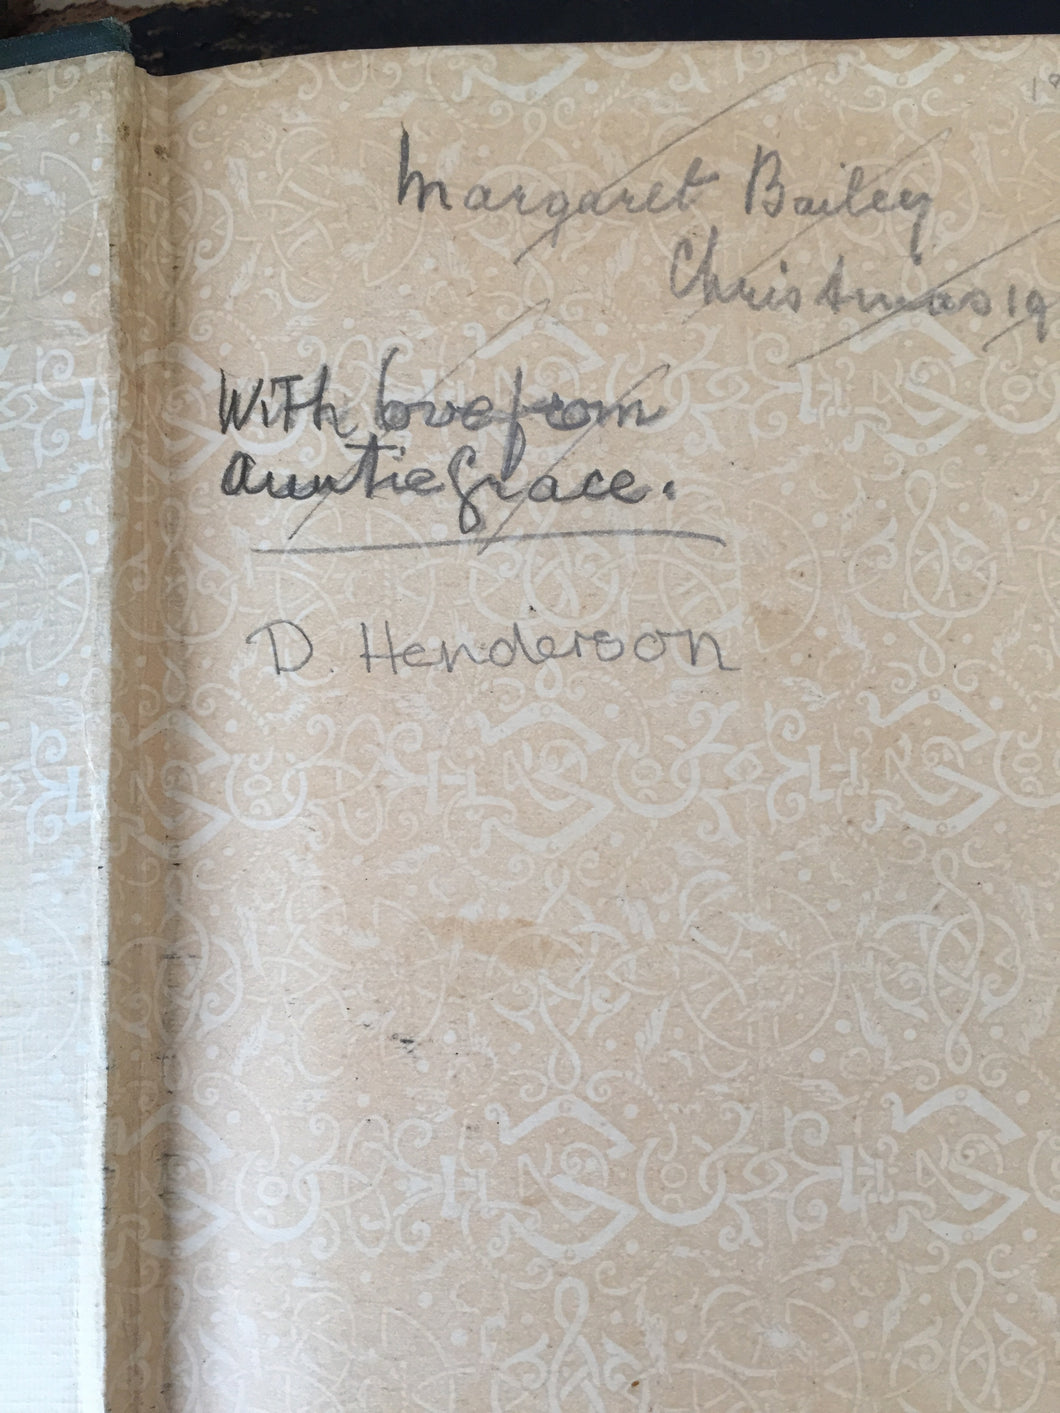 Margaret Bailey
Christmas 19
With love from
Auntie Grace.
D. Henderson